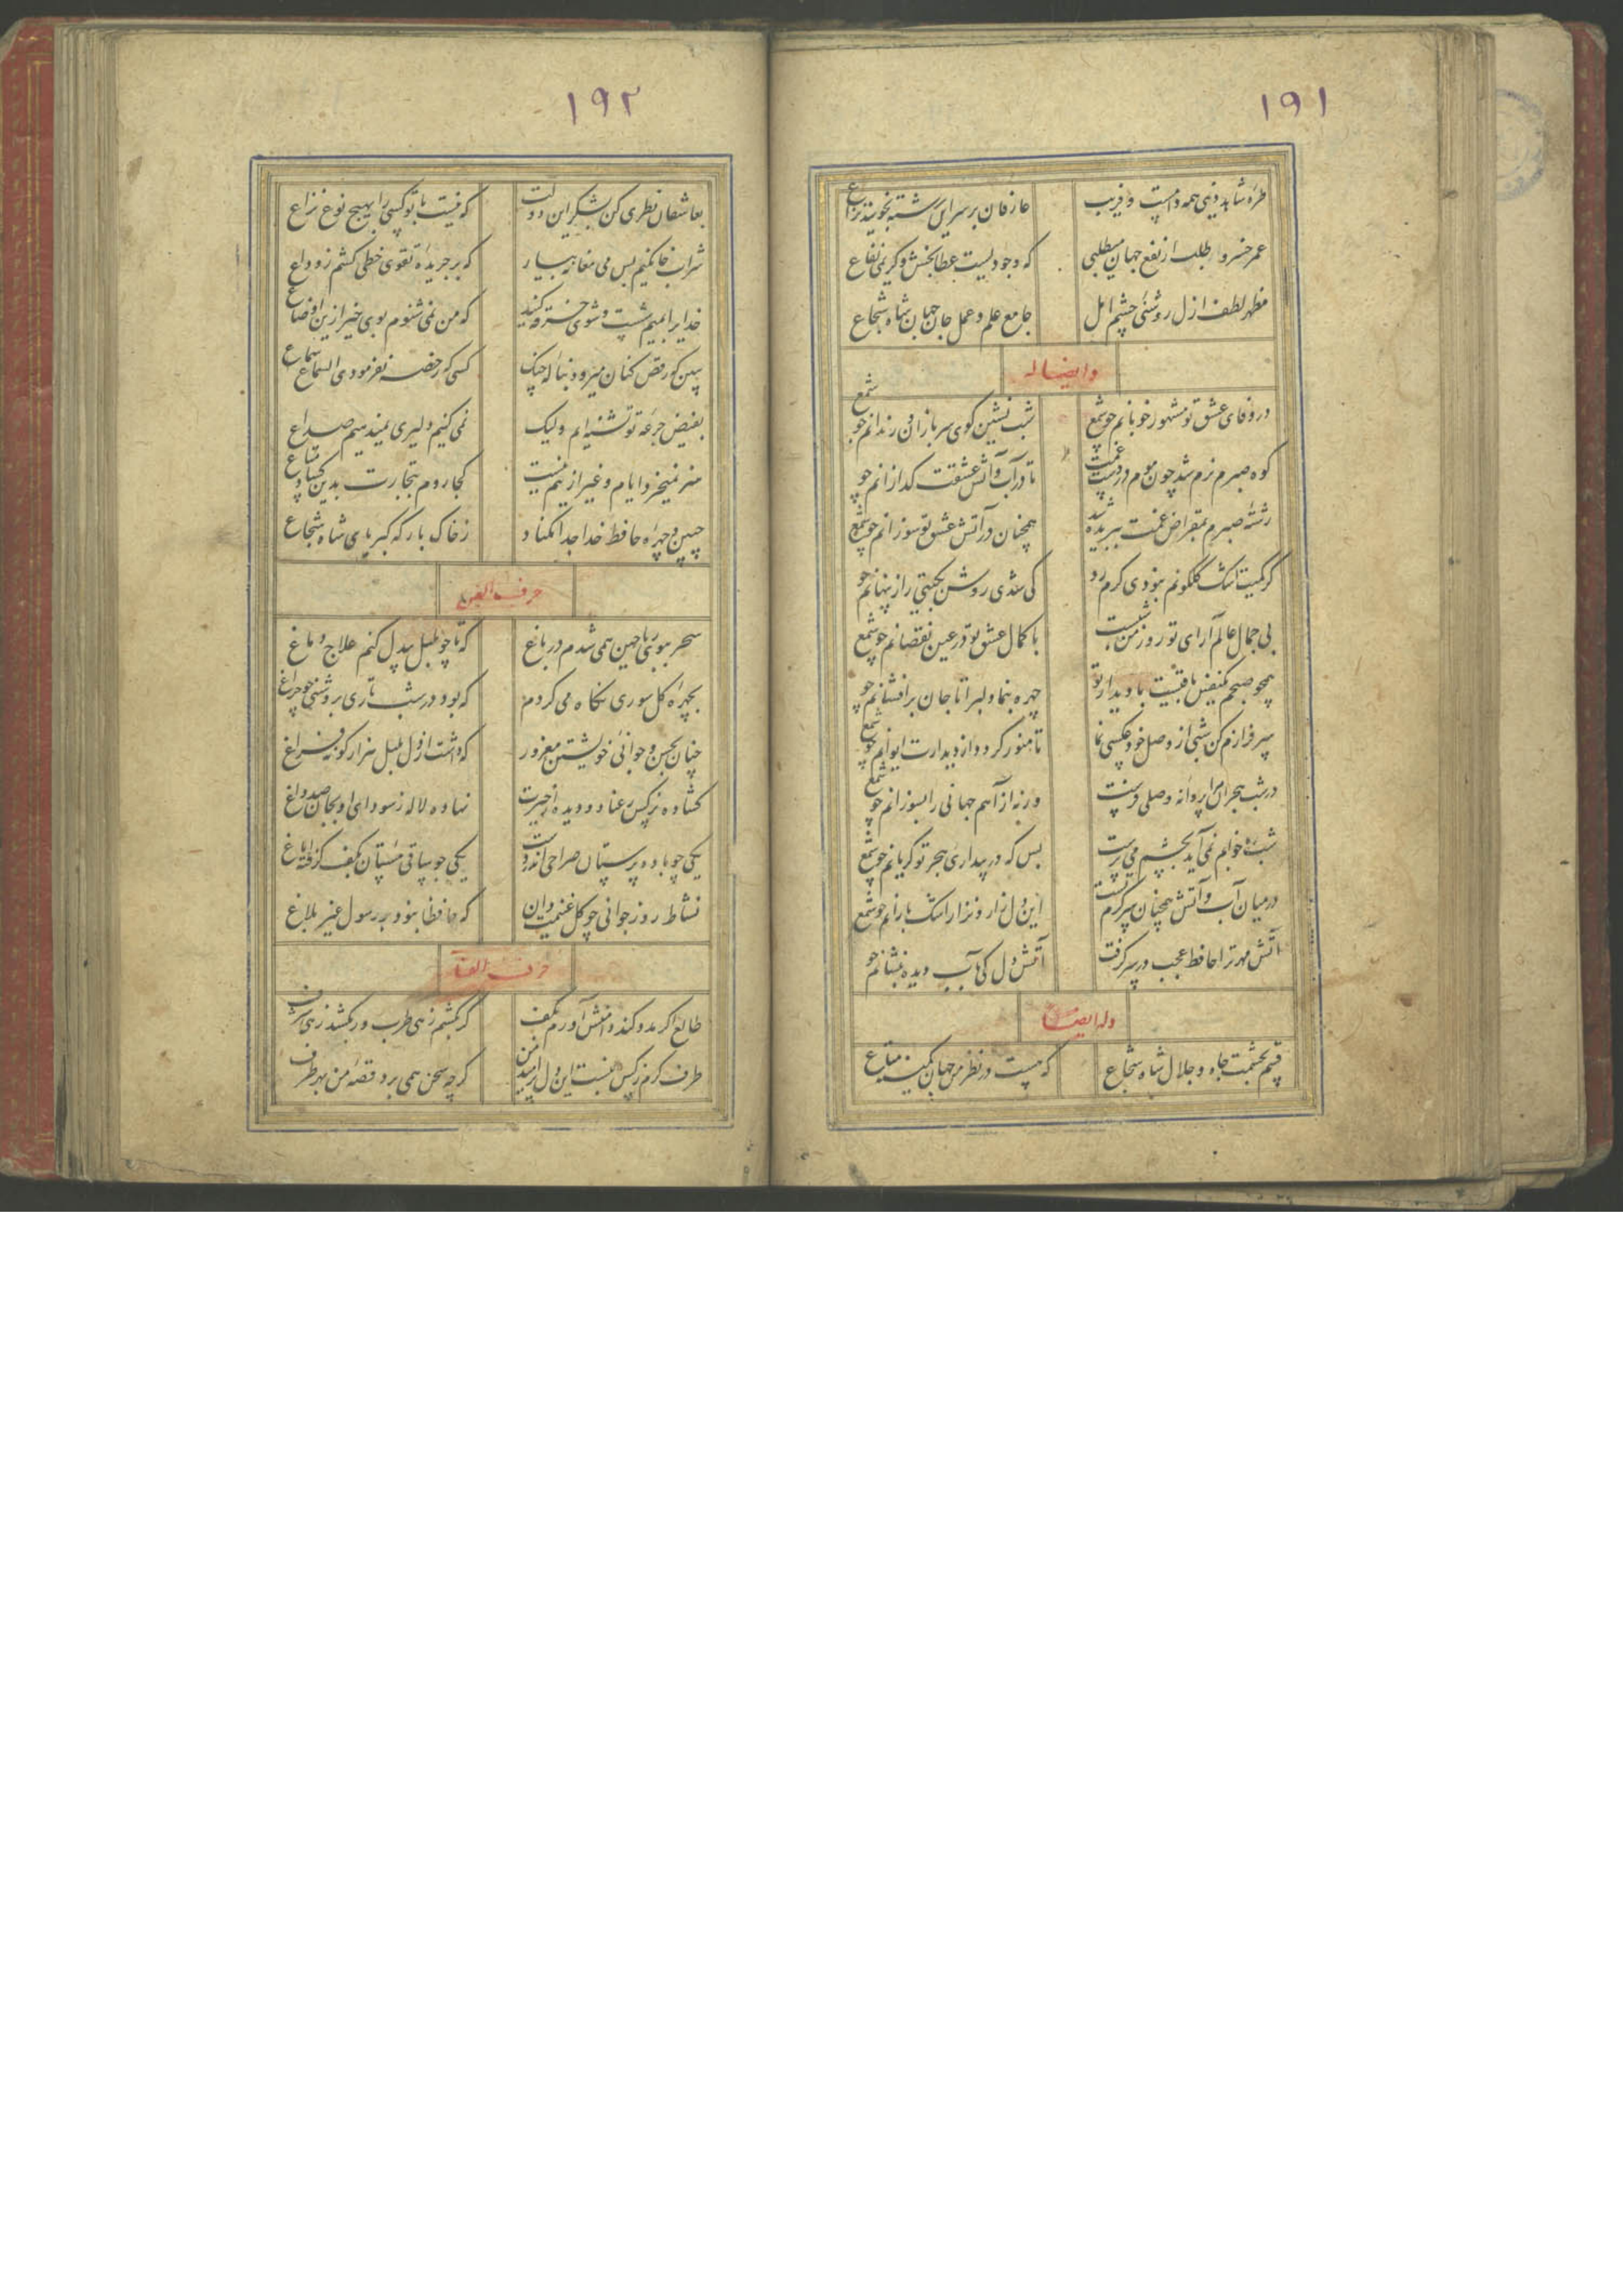 ۱۹۱
طره شاهد دنیی همه دامست و فریب عارفان بر سر این رشته نجویند نزاع
عمر خسرو طلب ار نفع جهان میطلبی که وجودیست عطابخش و کریمی نفاع
مظهر لطف ازل روشنی چشم امل جامع علم و عمل جان جهان شاه شجاع
وایضا له
در وفای عشق تو مشهور خوبانم چو شمع شب نشین کوی سربازان و رندانم چو شمع
کوه صبرم نرم شد چون موم در دست غمت تا در آب و آتش عشقت گدازانم چو
رشته صبرم بمقراض غمت ببریده شد همچنان در آتش عشق تو سوزانم چو شمع
گر کمیت اشک گلگونم نبودی گرم رو کی شدی روشن بگیتی راز پنهانم چو
بی جمال عالم آرای تو روز من شبست با کمال عشق تو در عین نقصانم چو شمع
همچو صبحم یکنفس باقیست با دیدار تو چهره بنما دلبرا تا جان برافشانم چو
سرفرازم کن شبی از وصل خود عکسی نما تا منور گردد از دیدارت ایوانم چو شمع
در شب هجران مرا پروانه وصلی فرست ورنه از آهم جهانی را بسوزانم چو شمع
شب خوابم نمی آید بچشم می پرست بس که در بیداری هجر تو گریانم چو شمع
در میان آب و آتش همچنان سرگرم تست این دل زار و نزار اشک بارانم چو شمع
آتش مهر ترا حافظ عجب در سر گرفت آتش دل کی بآب دیده بنشانم چو
وله ایضا
قسم بحشمت و جاه و جلال شاه شجاع که نیست در نظر من جهان بکمینه متاع
۱۹۲
بعاشقان نظری کن بشکر این دولت که نیست با تو کسی را بهیچ نوع نزاع
شراب خانگیم بس می مغانه بیار که بر جریده تقوی خطی کشم ز وداع
خدایرا بمیم شست و شوی خرقه کنید که من نمی شنوم بوی خیر ازین اوضاع
ببین که رقص کنان میرود بناله چنگ کسی که رخصه نفرمودی استماع سماع
بفیض جرعه تو تشنه ایم ولیک نمی کنیم دلیری نمیدهیم صداع
هنر نمیخرد ایام و غیر ازینم نیست کجا روم بتجارت بدین کساد متاع
جبین و چهره حافظ خدا جدا مکناد ز خاک بارگه کبریای شاه شجاع
حرف الغین
سحر ببوی ریاحین همی شدم در باغ که تا چو بلبل بیدل کنم علاج دماغ
بچهره گل سوری نگاه می کردم که بود در شب تاری بروشنی چو چراغ
چنان بحسن و جوانی خویشتن مغرور که داشت از دل بلبل هزار گونه فراغ
گشاده نرگس رعنا دو دیده از حیرت نهاده لاله ز سودای او بجان صد داغ
یکی چو باده پرستان صراحی اندر دست یکی چو ساقی مستان بکف گرفته ایاغ
نشاط روز جوانی چو گل غنیمت دان که حافظا نبود بر رسول غیر بلاغ
حرف الفا
طالع اگر مدد کند دامنش آورم بکف گر بکشم زهی طرب ور بکشد زهی شرف
طرف کرم ز کس نبست این دل پر امید من گرچه سخن همی برد قصه من بهر طرف